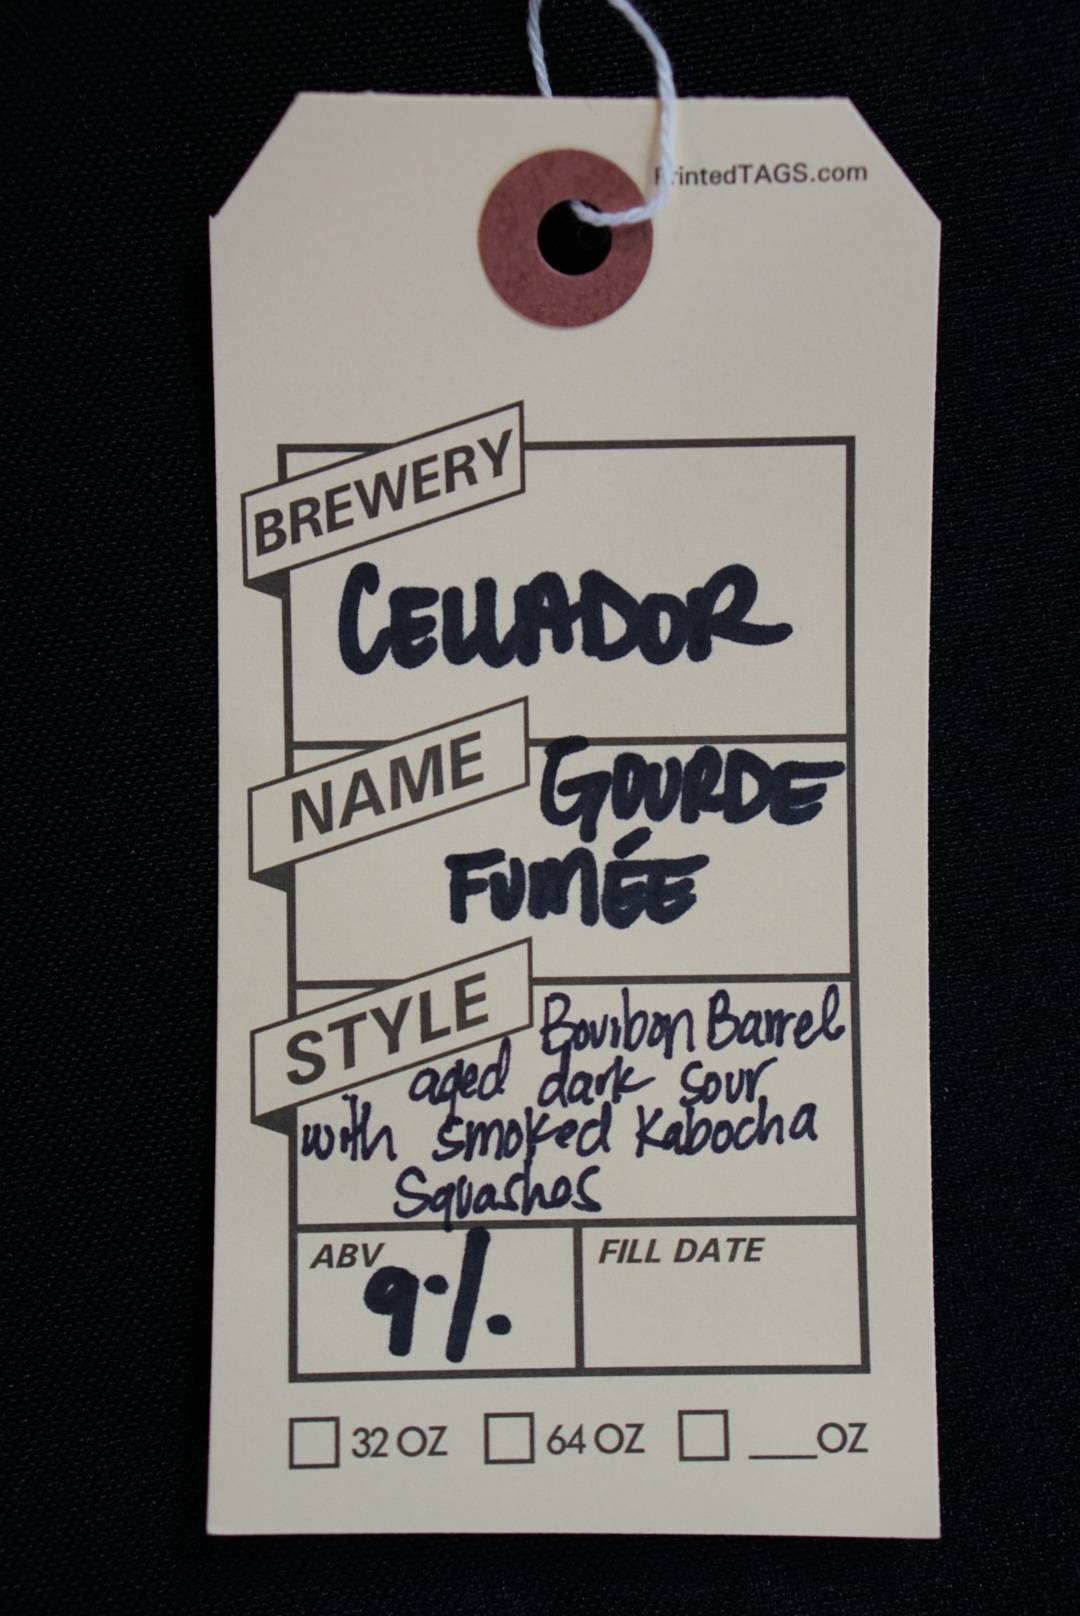 PrintedTAGS.com
BREWERY
CELLADOR
NAME
GOURDE
FUMÉE
STYLE
Bouibon Barrel
aged dark sour
with smoked Kabocha
Squashes
ABV
9%
FILL DATE
32 OZ 64 OZ ___OZ